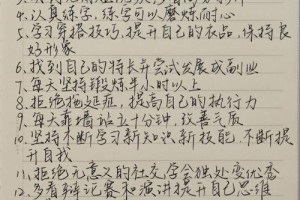 4.认真练字,练字可以磨炼耐心
5.学习穿搭技巧,提升自己的衣品,保持良
好形象
6.找到自己的特长并尝试发展成副业
7.每天坚持锻炼半小时以上
8.拒绝拖延症,提高自己的执行力
9.每天靠墙站立十分钟,改善气质
10.坚持不断学习新知识新技能,不断提
升自我
11.拒绝无意义的社交,学会独处变优秀
12.多看辩论赛和演讲提升自己思维